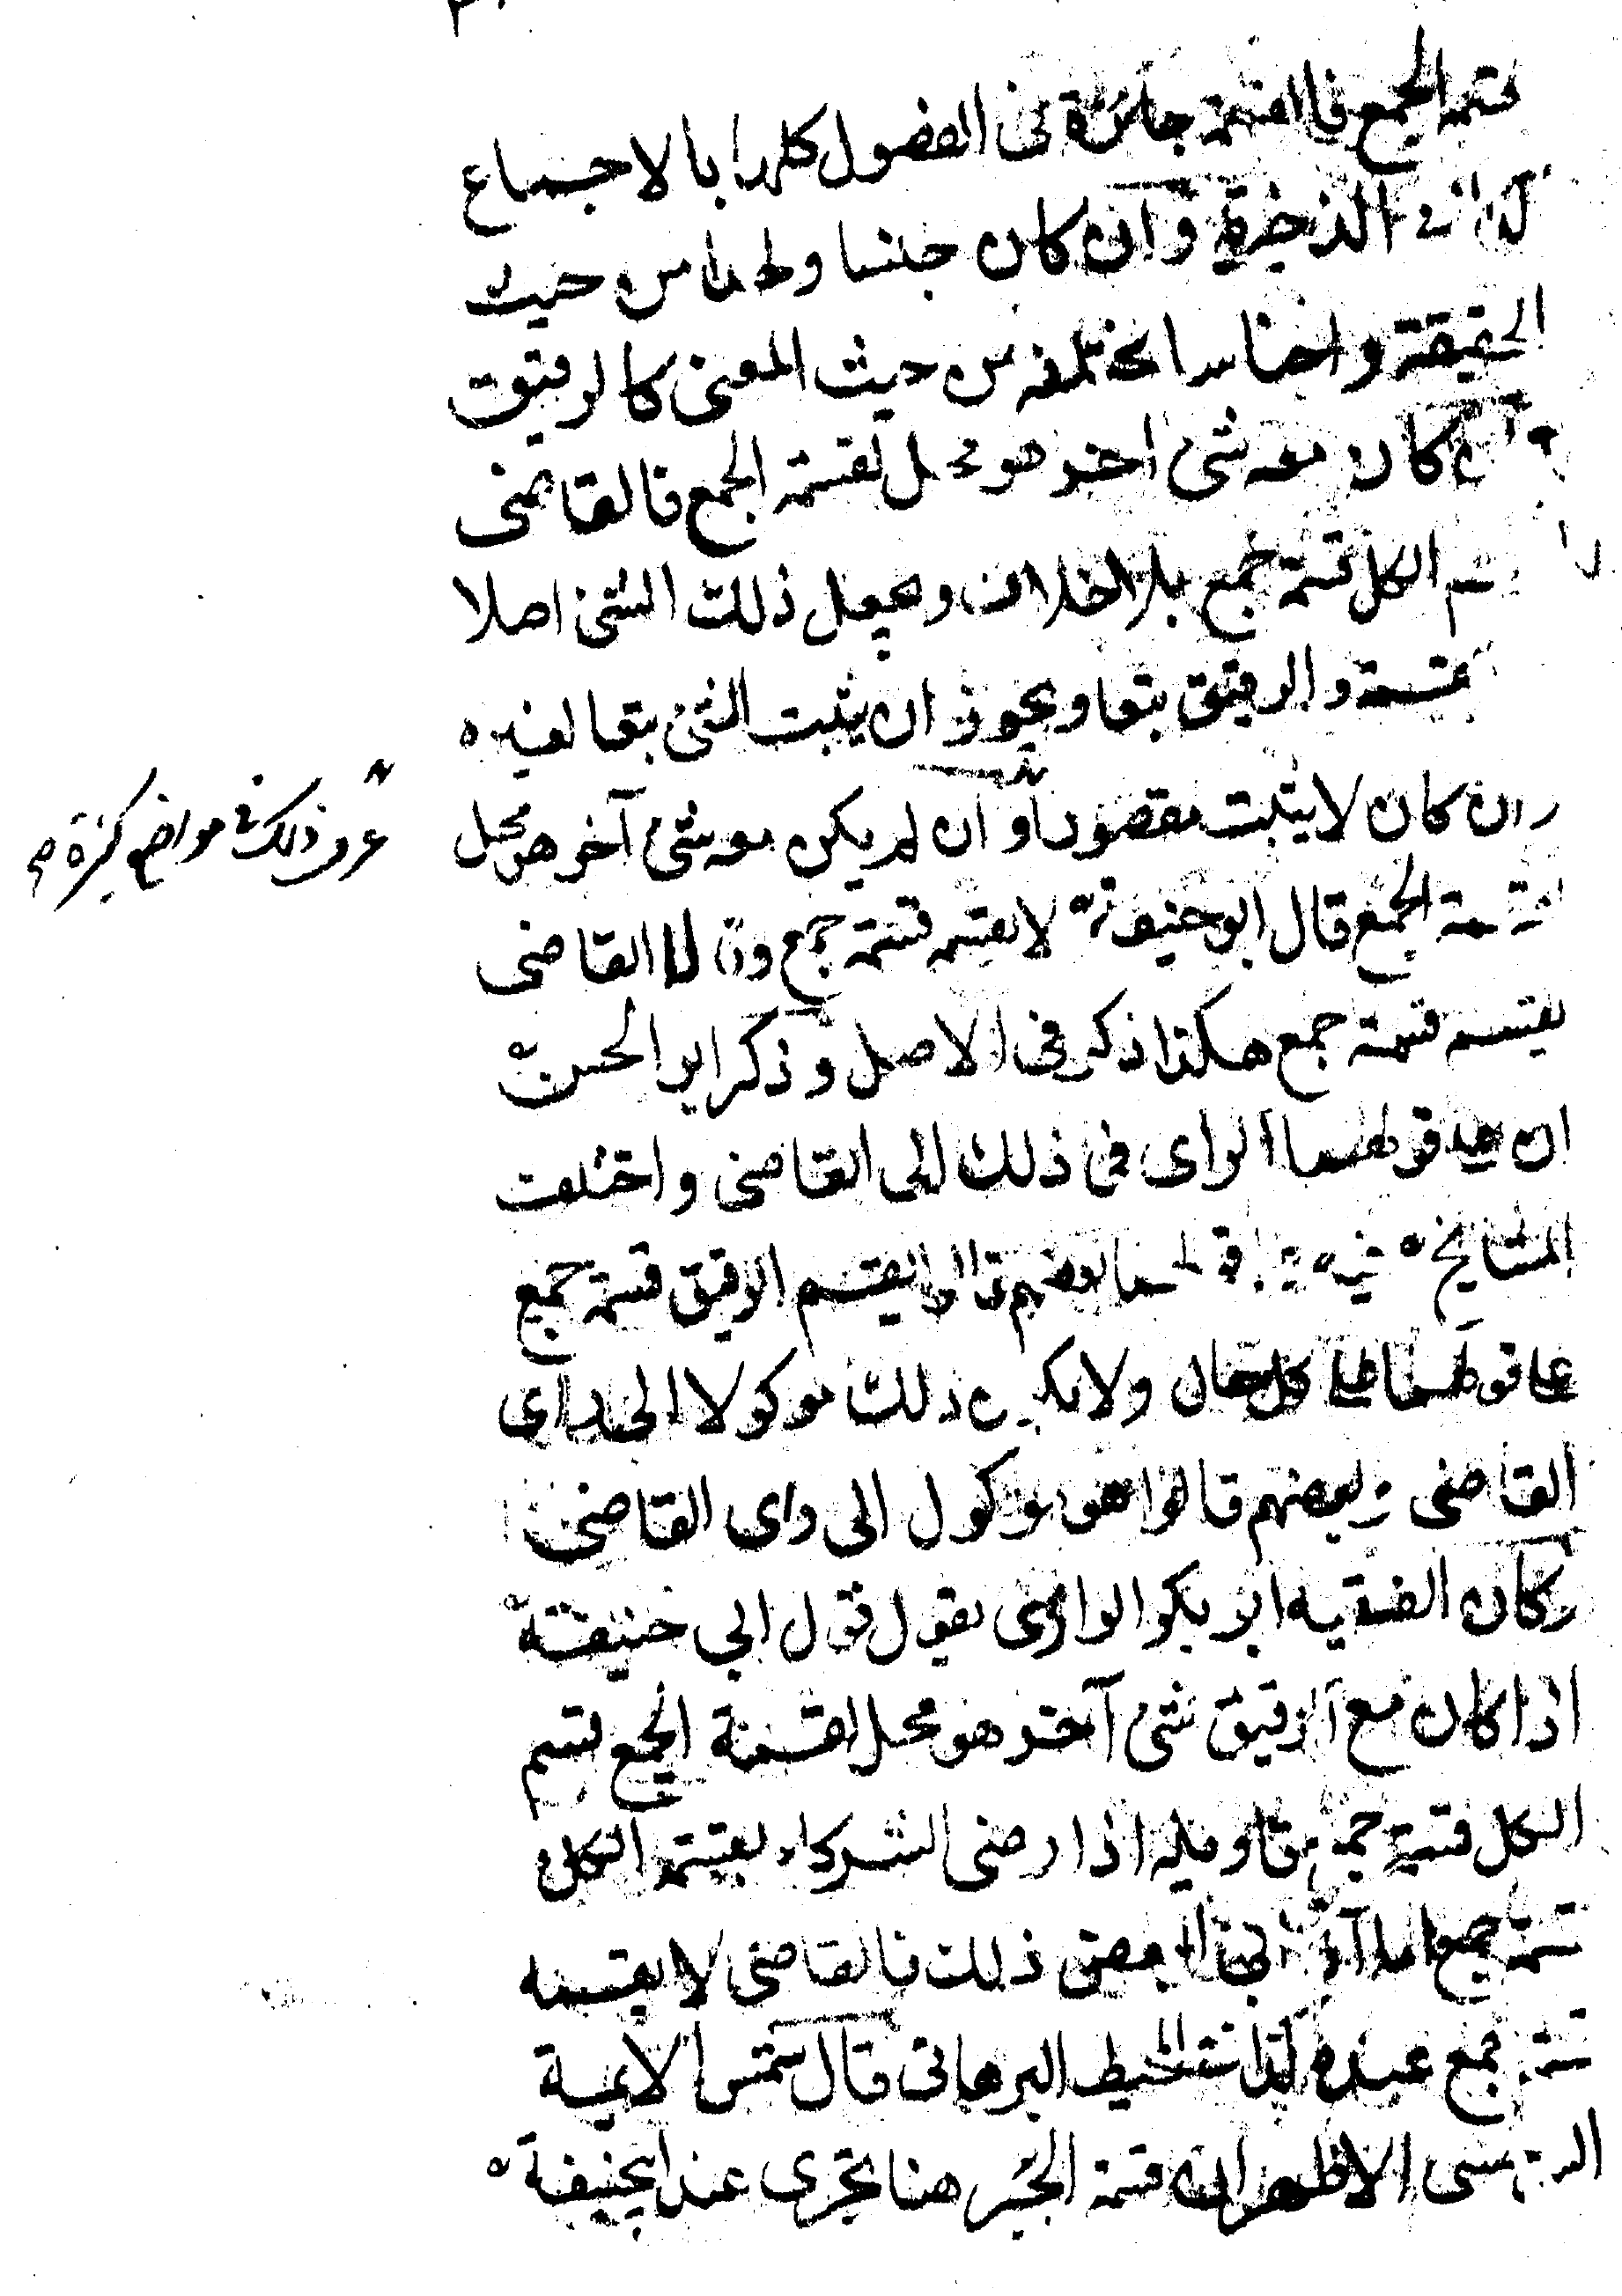 قسمة الجمع فالقسمة جائزة في الفصول كلها بالاجماع
كذا في الذخيرة وان كان جنسا واحدا من حيث
الحقيقة واجناسا مختلفة من حيث المعنى كالرقيق
كان معه شئ اخر هو محل لقسمة الجمع فالقاضى
الكل قسمة جمع بلا خلاف ويجعل ذلك الشئ اصلا
القسمة والرقيق تبعا ويجوز ان يثبت الشئ تبعا لغيره
وان كان لا يثبت مقصودا وان لم يكن معه شئ آخر هو محل
عرف ذلك في مواضع كثيرة صح
لقسمة الجمع قال ابو حنيفة لا يقسم قسمة جمع وقالا القاضى
يقسم قسمة جمع هكذا ذكر في الاصل وذكر ابو الحسن
ان على قولهما الراى في ذلك الى القاضى واختلفت
المشايخ فيه على قولهما بعضهم قالوا يقسم الرقيق قسمة جمع
على قولهما على كل حال ولا يكون ذلك موكولا الى راى
القاضى وبعضهم قالوا هو موكول الى راى القاضى
وكان الفقيه ابو بكر الرازى يقول قول ابى حنيفة
اذا كان مع الرقيق شئ آخر هو محل لقسمة الجمع يقسم
الكل قسمة جمع تاويله اذا رضى الشركاء بقسمة الكل
قسمة جمع اما اذا ابى البعض ذلك فالقاضى لا يقسمه
قسمة جمع عنده كذا في المحيط البرهانى قال شمس الايمة
السرخسى الاظهر ان قسمة الجبر هنا تجرى عند ابيحنيفة